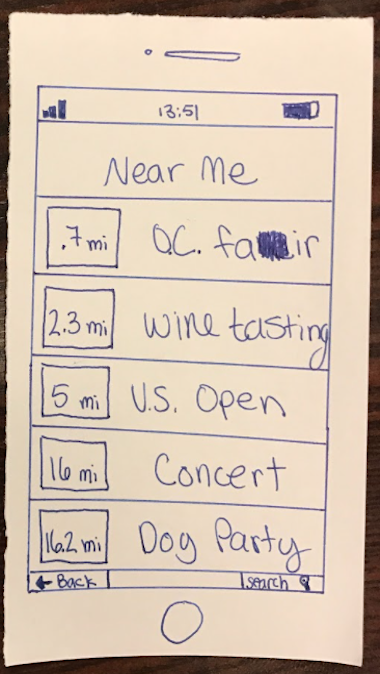 13:51
Near Me
.7 mi O.C. fair
2.3 mi wine tasting
5 mi U.S. Open
16 mi Concert
16.2 mi Dog Party
← Back search